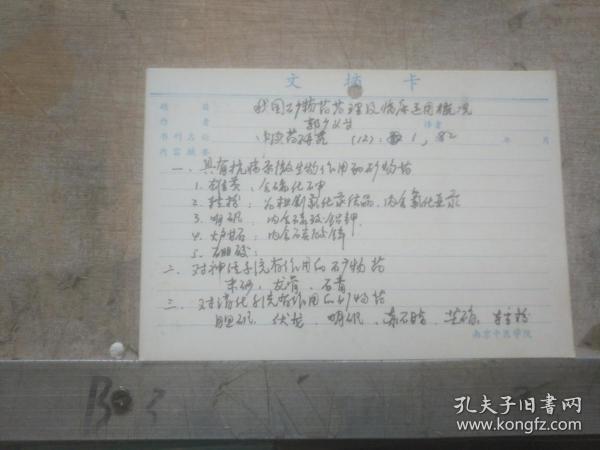 文摘卡
题目 我国矿物药药理及临床运用概况
作者 译者
书刊名称 (12): 1, 82 年 月
内容摘要
一、具有抗病原微生物作用的矿物药
1. 雄黄: 含硫化砷
2. 轻粉: 为粗制氯化汞结晶, 内含氯化亚汞
3. 明矾: 内含硫酸铝钾
4. 炉甘石: 内含碳酸锌
5. 硼砂:
二. 对神经系统有作用的矿物药
朱砂, 龙骨, 石膏
三. 对消化系统有作用的矿物药
胆矾, 伏龙, 明矾, 赤石脂, 芒硝,
南京中医学院
B 3
孔夫子旧书网
www.kongfz.com